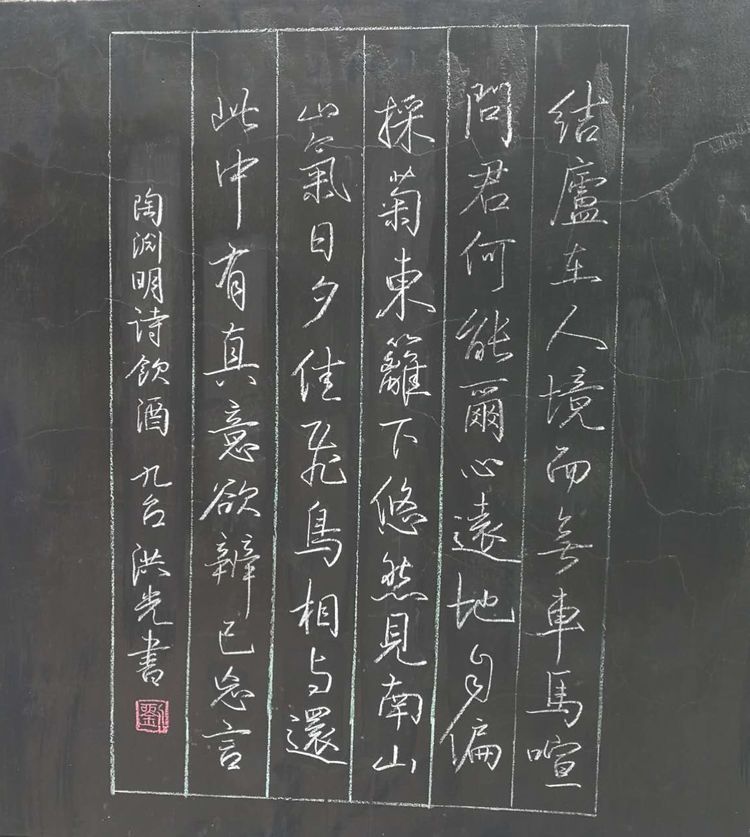 結廬在人境而無車馬喧
問君何能爾心遠地自偏
採菊東籬下悠然見南山
山氣日夕佳飛鳥相与還
此中有真意欲辨已忘言
陶渊明诗飲酒 九台洪光書
劉